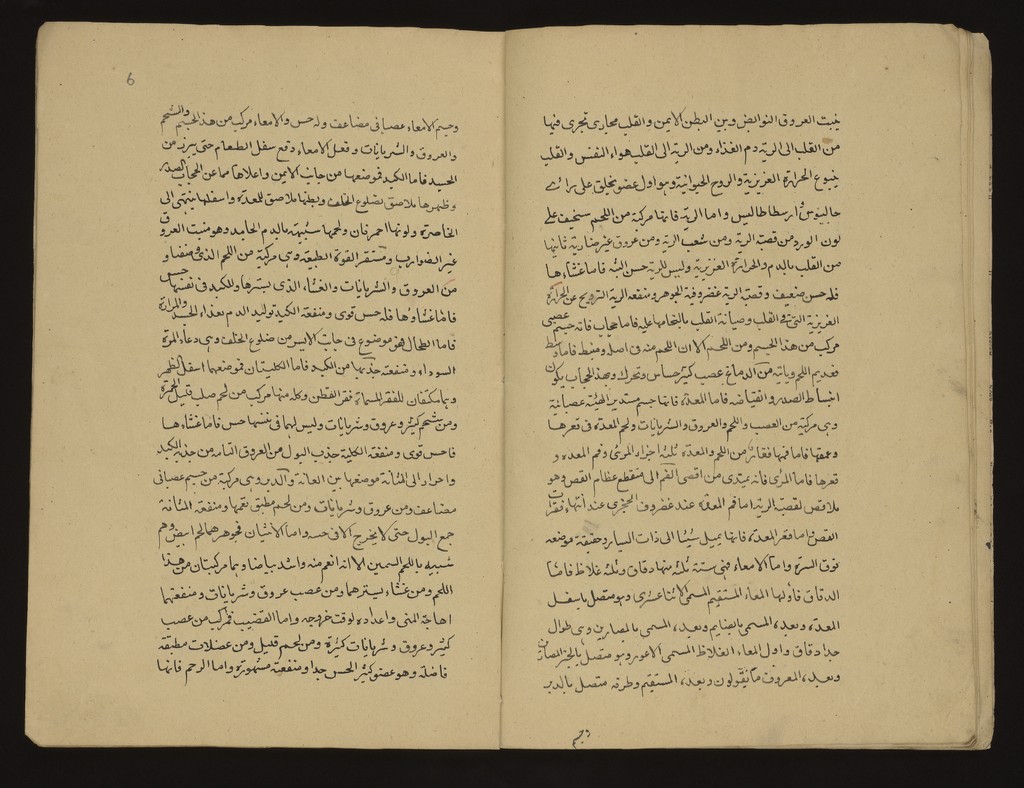 ينبت العروق النوابض وبين البطن الايمن والقلب مجارى تجرى فيها
من القلب الى الرية دم الغذاء ومن الرية الى القلب هواء النفس والقلب
ينبوع الحرارة الغريزية والروح الحيوانية وهو اول عضو يخلق على رائ
ارسطاطاليس واما الرية فانها مركبة من اللحم سخيف على
لون الورد من قصبة الرية ومن شعب الرية ومن عروق غير ضاربة
من القلب بالدم والحرارة الغريزية وليس للرية حس البتة فاما غشاءها
فله حس ضعيف وقصبة الرية غضروفية الجوهر ومنفعة الرية الترويح عن الحرارة
الغريزية التى فى القلب وصيانة القلب بالتحامها عليه فاما حجاب فانه جسم عصبى
مركب من هذا الجسم ومن اللحم الا ان اللحم منه فى اصل ومنبط فاما وسط
فعديم اللحم وياتيه من الدماغ عصب كثير حساس وتحرك وبهذا الحجاب يكون
انبساط الصدر وانقباضه فاما المعدة فانها جسم مستدير الهيئة عصبانية
وهى مركبة من العصب واللحم والعروق والشريانات ولحم المعدة فى قعرها
من اللحم والمعدة ثلثة اجزاء المرئ وفم المعدة و
قعرها فاما المرئ فانه يبتدى من اقصى الفم الى منقطع عظام القص وهو
ملاصق لقصبة الرية اما فم المعدة عند غضروف الخنجرى عند انتهاء فقرات
القص واما قعر المعدة فانها يميل شيئا الى ذات اليسار وحقيقة موضعه
فوق السرة واما الامعاء فهى ستة ثلثة منها دقاق وثلثة غلاظ فاما
الدقاق فاولها المعاء المستقيم المسمى الاثنا عشرى وهو متصل باسفل
المعدة وبعده المسمى بالصايم وبعده المسمى بالمصارين وهى طوال
جدا دقاق واول المعاء الغلاظ المسمى الاعور وهو متصل
وبعده المعروف بالقولون وبعده المستقيم وطرفه متصل بالدبر
وجسم
6
وجسم الامعاء عصبانى مضاعف وله حس والامعاء مركب من هذا الجسم والشحم
والعروق والشريانات وفعل الامعاء دفع سفل الطعام حتى يبرز من
الجسد فاما الكبد فموضعها من جانب الايمن واعلاها مما عن الحجاب الصدر
وظهرها ملاصق بضلوع الخلف وبطنها ملاصق للمعدة واسفلها ينتهى الى
الخاصرة ولونها احمر قان ولحمها شبيه بالدم الجامد وهو منبت العروق
غير الضوارب ومستقر القوة الطبيعة وهى مركبة من اللحم الذى
من العروق والشريانات والغشاء الذى يسترها وللكبد فى نفسها حس
فاما غشاؤها فله حس قوى ومنفعة الكبد توليد الدم بغذاء الجسد والمرارة
فاما الطحال فهو موضوع فى جانب الايسر من ضلوع الخلف وهى وعاء المرة
السوداء ومنفعة جذبها من الكبد فاما الكليتان فموضعهما اسفل الظهر
وهما مكتفان للفقر المسماة فقر القطن وكله منهما مركب من لحم صلب قليل الحمرة
ومن شحم كثير وعروق وشريانات وليس لهما فى نفسهما حس فاما غشاءها
فا حس قوى ومنفعة الكلية جذب البول من العروق النابة من جذبة الكبد
واحراد الى المثانة موضعها بين العانة والدبر وهى مركبة من جسم عصبانى
مضاعف ومن عروق وشريانات ومن لحم مطبق بفمها ومنفعة المثانة
جمع البول حتى لا يخرج واما الانثيان فجوهرهما لحم ابيض وهم
شبيه باللحم السمين الا انه انعم منه واشد بياضا وهما مركبتان من هذا
اللحم ومن غشاء يسترهما ومن عصب عروق وشريانات ومنفعتهما
اهاجة المنى واعداده لوقت خروجه واما القضيب فمركب من عصب
كثير وعروق وشريانات كثيرة ومن لحم قليل ومن عضلات مطبقة
فاضلة وهو عضو كثير الحس جدا ومنفعة مشهورة واما الرحم فانها